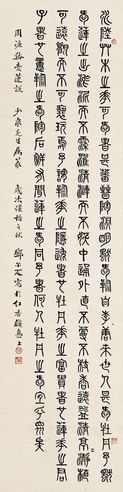 水陸艸木之華可愛者甚蕃晉陶淵明獨愛菊自李唐來世人甚愛牡丹予獨
愛蓮之出淤泥而不染濯清漣而不妖中通外直不蔓不枝香遠益清亭亭淨植
可遠觀而不可褻翫焉予謂菊華之隱逸者也牡丹華之富貴者也蓮華之君
子者也噫菊之愛陶後鮮有聞蓮之愛同予者何人牡丹之愛宜乎眾矣
周濂谿愛蓮說 少泉先生屬篆 歲次彊梧之秋 鄧尔疋寫於紅香爐島上